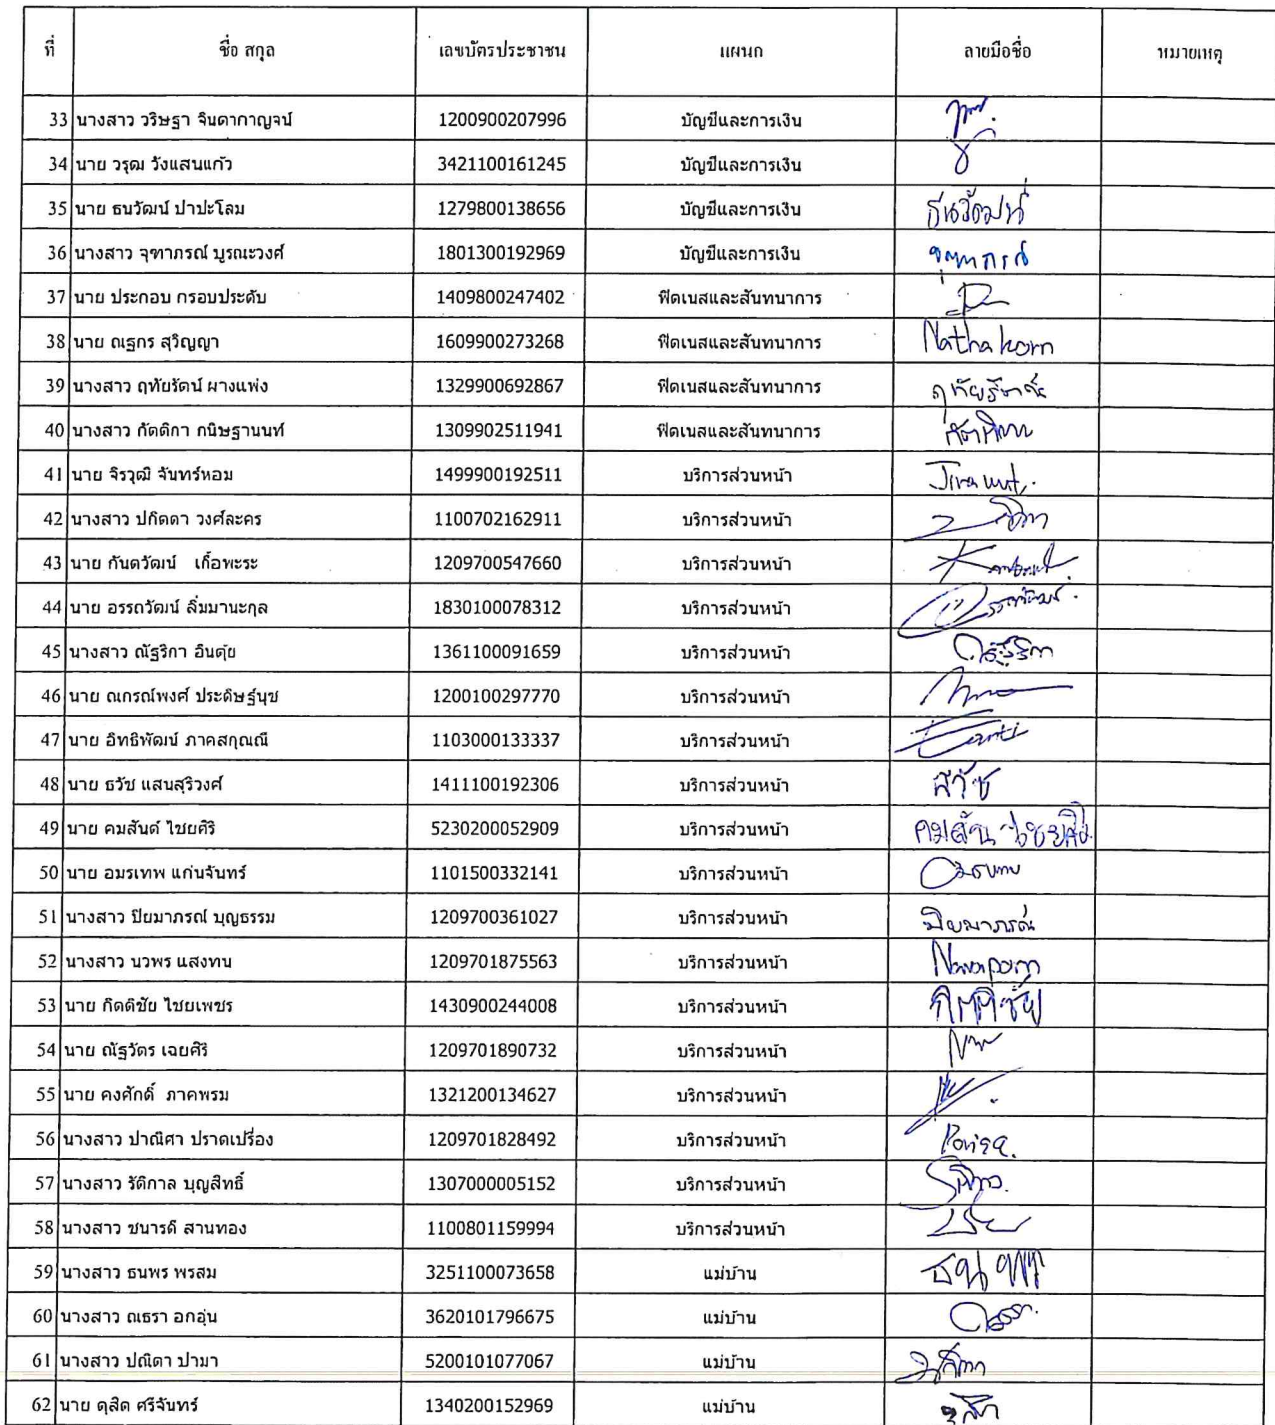 ที่ ชื่อ สกุล เลขบัตรประชาชน แผนก ลายมือชื่อ หมายเหตุ
33 นางสาว วริษฐา จินดากาญจน์ 1200900207996 บัญชีและการเงิน
34 นาย วรุฒ วังแสนแก้ว 3421100161245 บัญชีและการเงิน
35 นาย ธนวัฒน์ ปาปะโลม 1279800138656 บัญชีและการเงิน ธนวัฒน์
36 นางสาว จุฑาภรณ์ บูรณะวงศ์ 1801300192969 บัญชีและการเงิน จุฑาภรณ์
37 นาย ประกอบ กรอบประดับ 1409800247402 ฟิตเนสและสันทนาการ
38 นาย ณฐกร สุวิญญา 1609900273268 ฟิตเนสและสันทนาการ Nathakorn
39 นางสาว ฤทัยรัตน์ ผางแพ่ง 1329900692867 ฟิตเนสและสันทนาการ ฤทัยรัตน์
40 นางสาว กัตติกา กนิษฐานนท์ 1309902511941 ฟิตเนสและสันทนาการ กัตติกา
41 นาย จิรวุฒิ จันทร์หอม 1499900192511 บริการส่วนหน้า Jirawut.
42 นางสาว ปกิตตา วงศ์ละคร 1100702162911 บริการส่วนหน้า
43 นาย กันตวัฒน์ เกื้อพะระ 1209700547660 บริการส่วนหน้า
44 นาย อรรถวัฒน์ ลิ่มมานะกุล 1830100078312 บริการส่วนหน้า
45 นางสาว ณัฐริกา อินตุ้ย 1361100091659 บริการส่วนหน้า ณัฐริกา
46 นาย ณกรณ์พงศ์ ประดิษฐ์นุช 1200100297770 บริการส่วนหน้า
47 นาย อิทธิพัฒน์ ภาคสกุณณี 1103000133337 บริการส่วนหน้า
48 นาย ธวัช แสนสุริวงศ์ 1411100192306 บริการส่วนหน้า ธวัช
49 นาย คมสันต์ ไชยศิริ 5230200052909 บริการส่วนหน้า คมสัน ไชยศิริ
50 นาย อมรเทพ แก่นจันทร์ 1101500332141 บริการส่วนหน้า
51 นางสาว ปิยมาภรณ์ บุญธรรม 1209700361027 บริการส่วนหน้า ปิยมาภรณ์
52 นางสาว นวพร แสงทน 1209701875563 บริการส่วนหน้า Nawaporn
53 นาย กิตติชัย ไชยเพชร 1430900244008 บริการส่วนหน้า กิตติชัย
54 นาย ณัฐวัตร เฉยศิริ 1209701890732 บริการส่วนหน้า
55 นาย คงศักดิ์ ภาคพรม 1321200134627 บริการส่วนหน้า
56 นางสาว ปาณิศา ปราดเปรื่อง 1209701828492 บริการส่วนหน้า Panisa.
57 นางสาว รัติกาล บุญสิทธิ์ 1307000005152 บริการส่วนหน้า
58 นางสาว ชนารดี สานทอง 1100801159994 บริการส่วนหน้า
59 นางสาว ธนพร พรสม 3251100073658 แม่บ้าน ธนพร
60 นางสาว ณธรา อกอุ่น 3620101796675 แม่บ้าน ณธรา
61 นางสาว ปณิตา ปามา 5200101077067 แม่บ้าน ปณิตา
62 นาย ดุสิต ศรีจันทร์ 1340200152969 แม่บ้าน